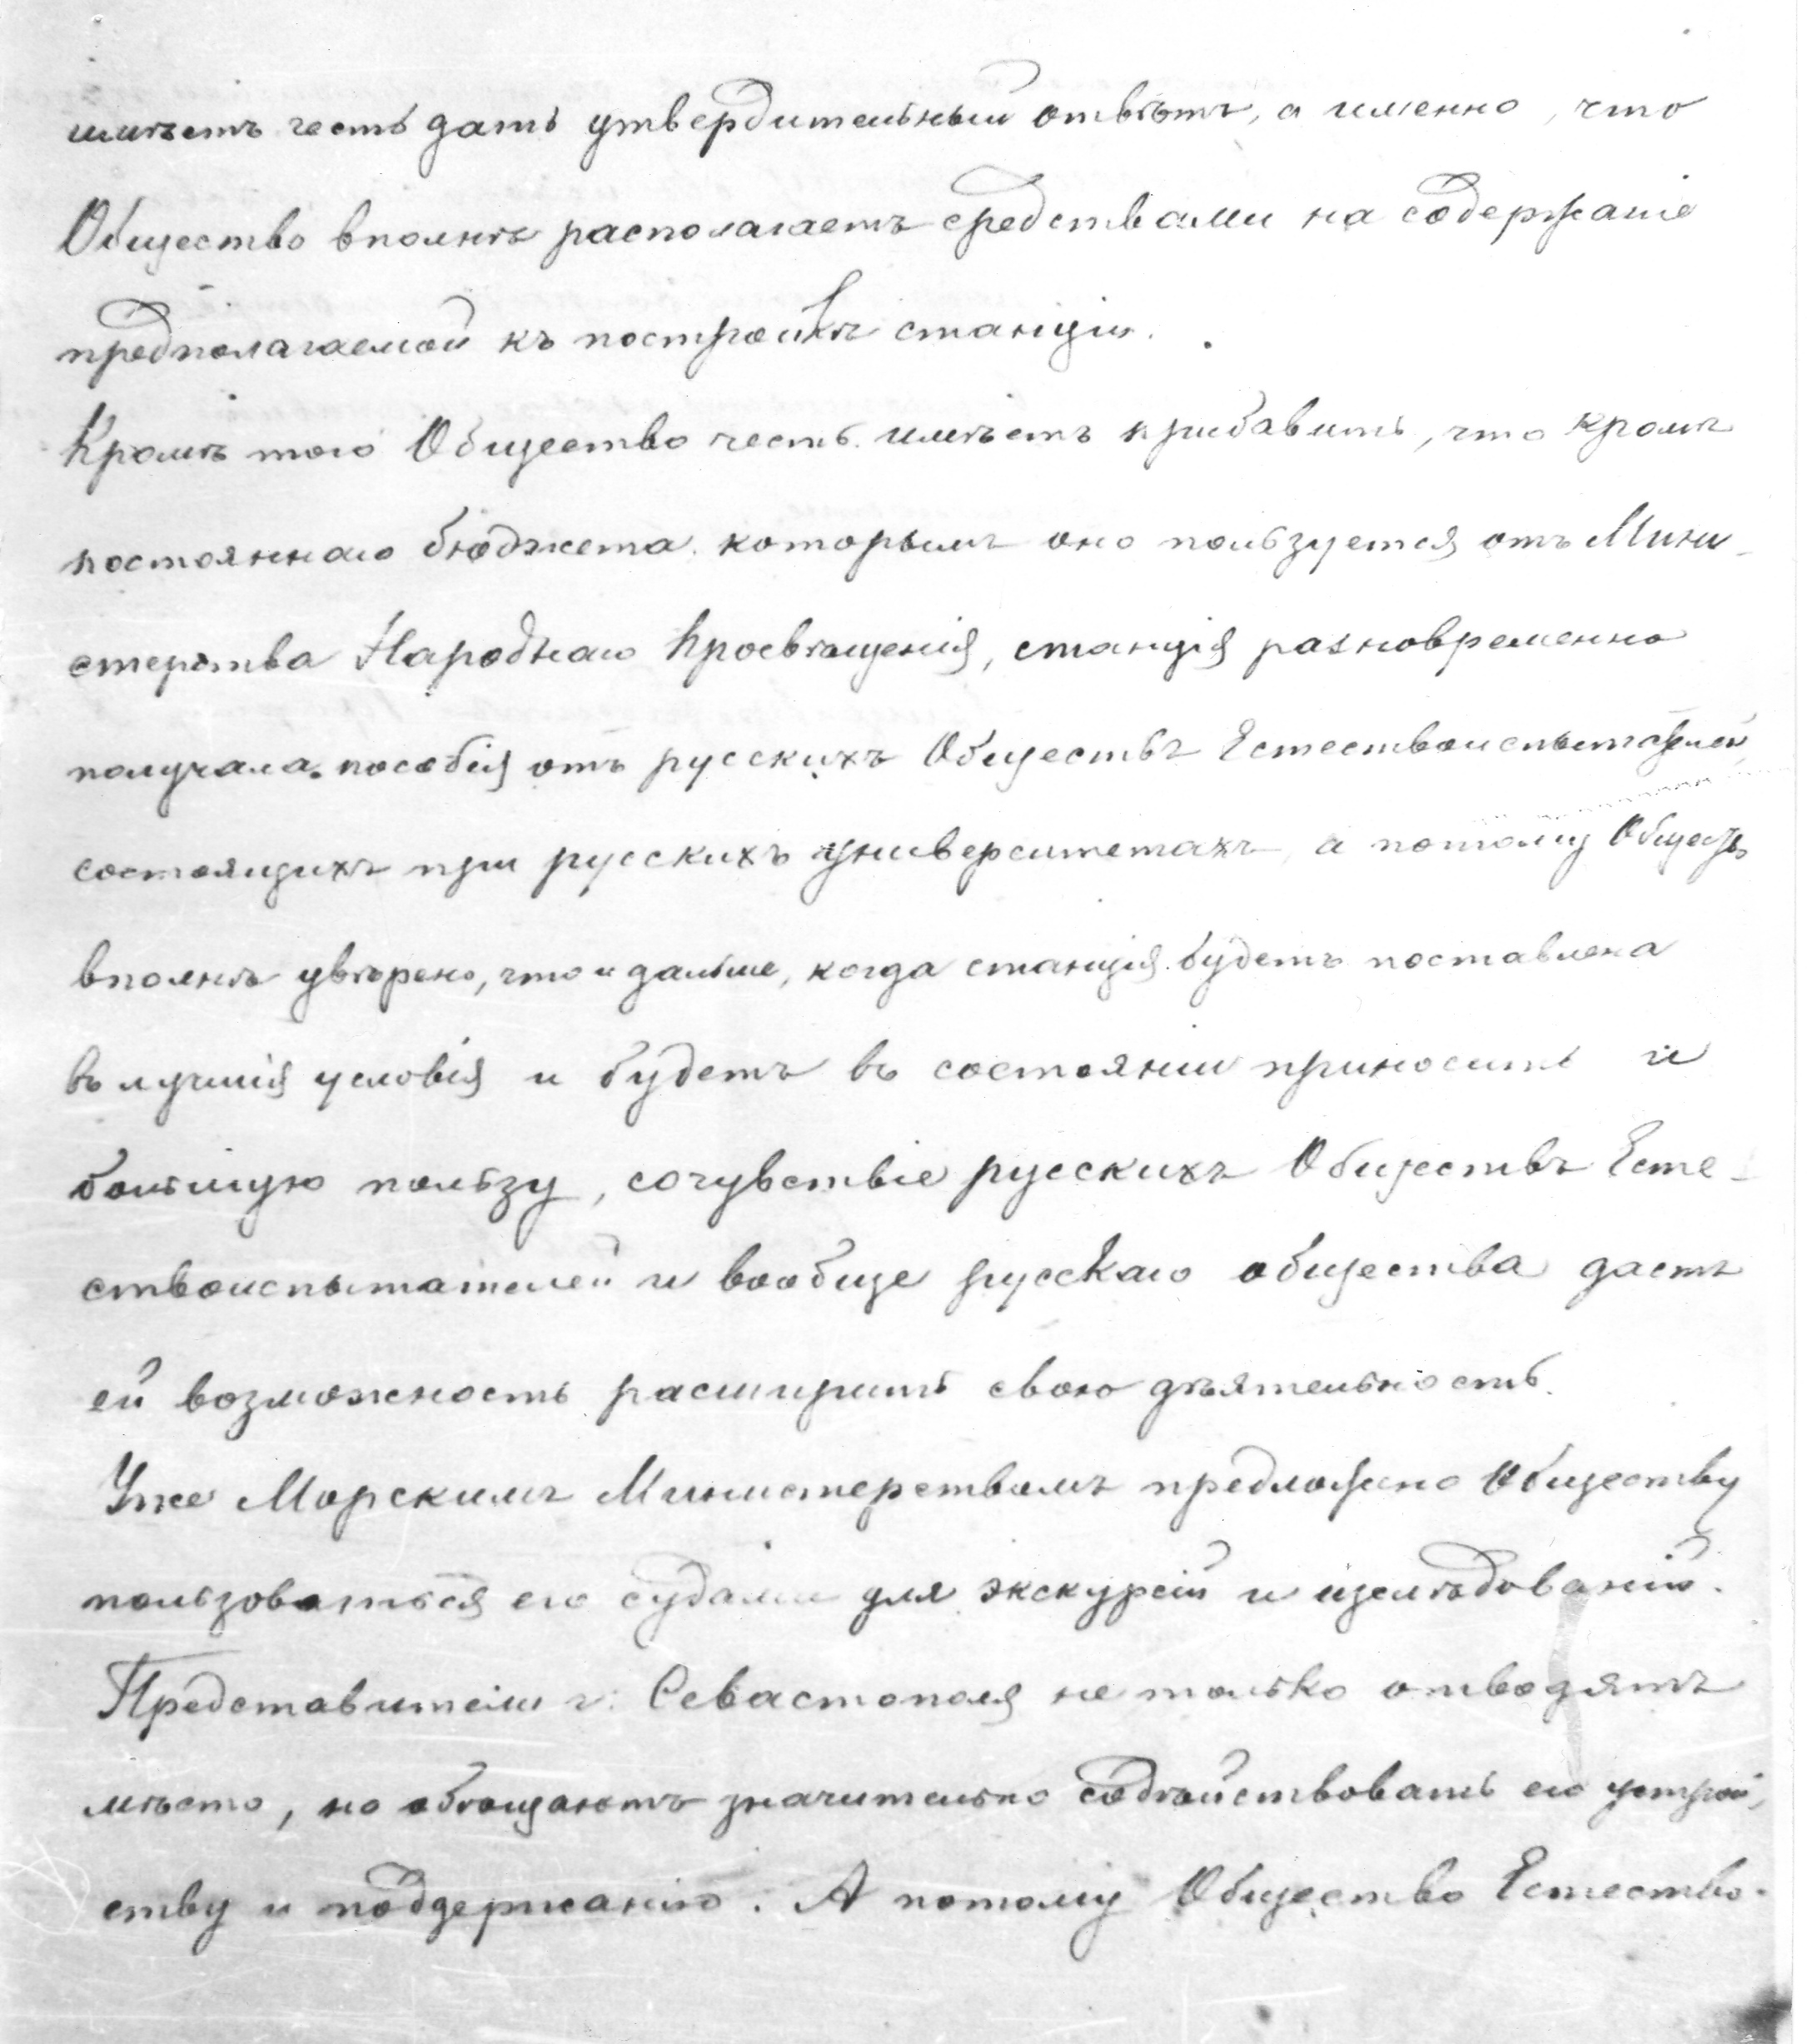 имѣетъ честь дать утвердительный отвѣтъ, а именно, что
Общество вполнѣ располагаетъ средствами на содержаніе
предполагаемой къ постройкѣ станціи.
Кромѣ того Общество честь имѣетъ прибавить, что кромѣ
постояннаго бюджета которымъ оно пользуется отъ Мини-
стерства Народнаго Просвѣщенія, станція разновременно
получала пособія отъ русскихъ Обществъ Естествоиспытателей,
состоящихъ при русскихъ университетахъ, а потому Общество
вполнѣ увѣрено, что и дальше, когда станція будетъ поставлена
въ лучшія условія и будетъ въ состояніи приносить и
большую пользу, сочувствіе русскихъ Обществъ Есте-
ствоиспытателей и вообще русскаго общества дастъ
ей возможность расширить свою дѣятельность.
Уже Морскимъ Министерствомъ предложено Обществу
пользоваться его судами для экскурсій и изслѣдованій.
Представители г. Севастополя не только отводятъ
мѣсто, но обѣщаютъ значительно содѣйствовать его устрой-
ству и поддержанію. А потому Общество Естество-